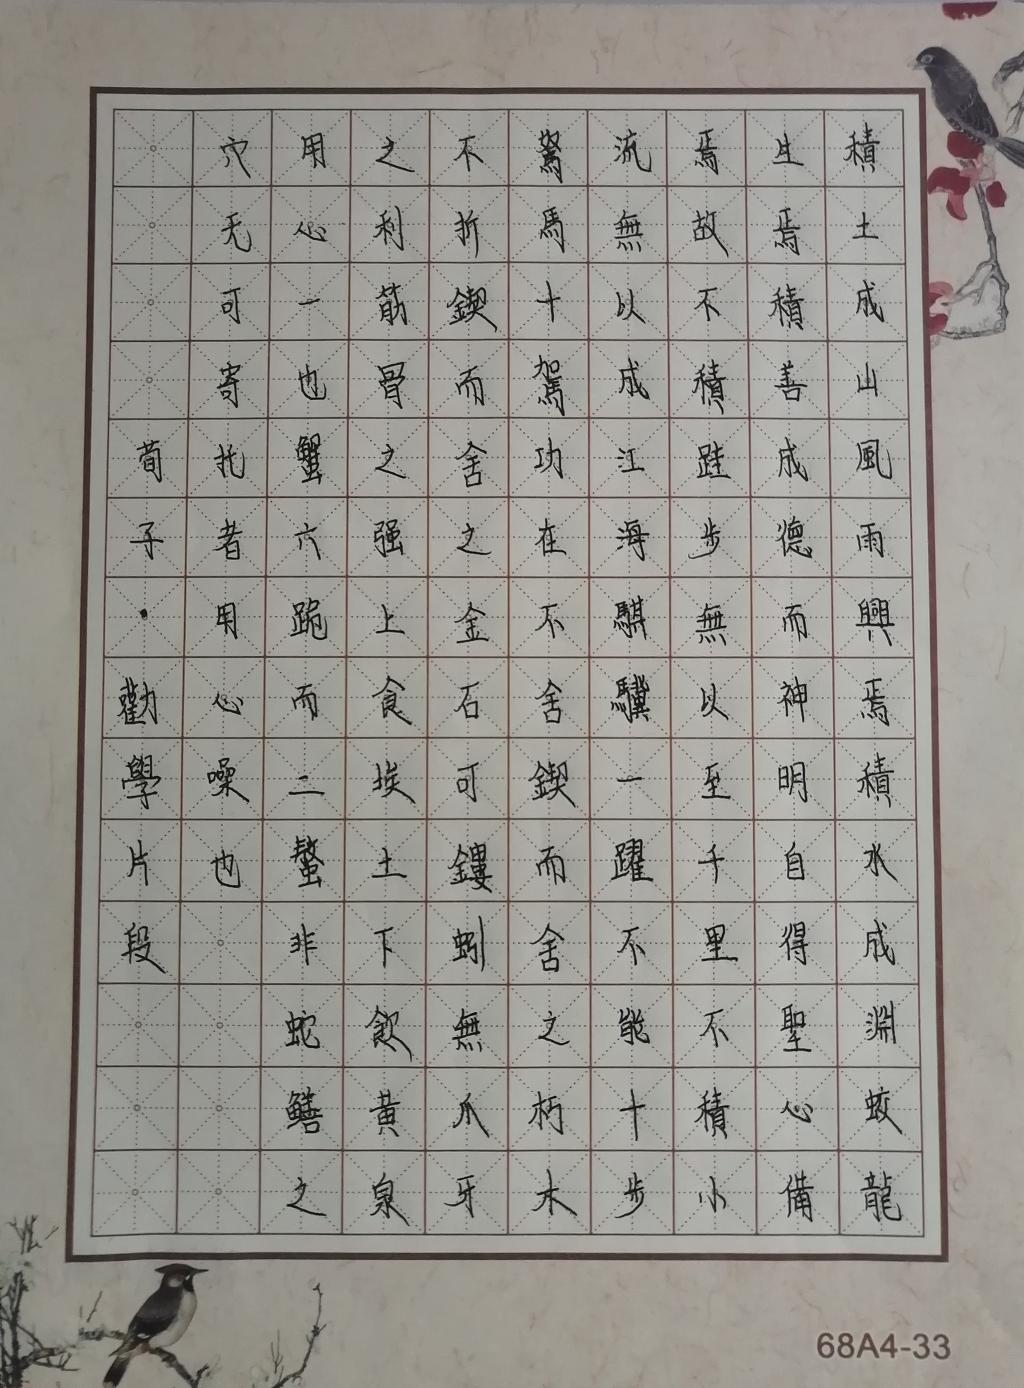 積土成山風雨興焉積水成淵蛟龍
生焉積善成德而神明自得聖心備
焉故不積跬步無以至千里不積小
流無以成江海騏驥一躍不能十步
駑馬十駕功在不舍鍥而舍之朽木
不折鍥而舍之金石可鏤蚓無爪牙
之利筋骨之强上食埃土下飲黃泉
用心一也蟹六跪而二螯非蛇鱔之
穴无可寄托者用心噪也
荀子·勸學片段
68A4-33